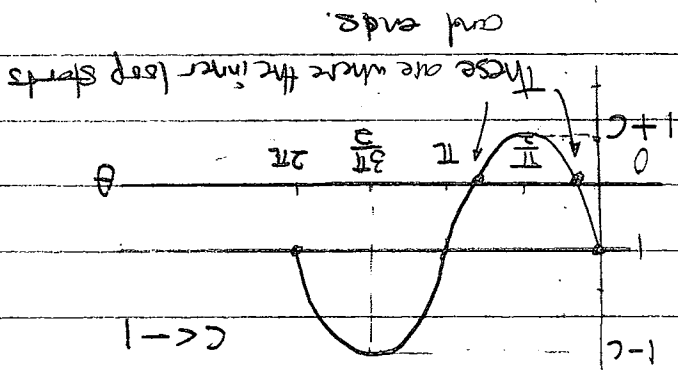 C < -1
1-C
1
0 π/2 π 3π/2 2π θ
1+C
These are where the inner loop starts
and ends.